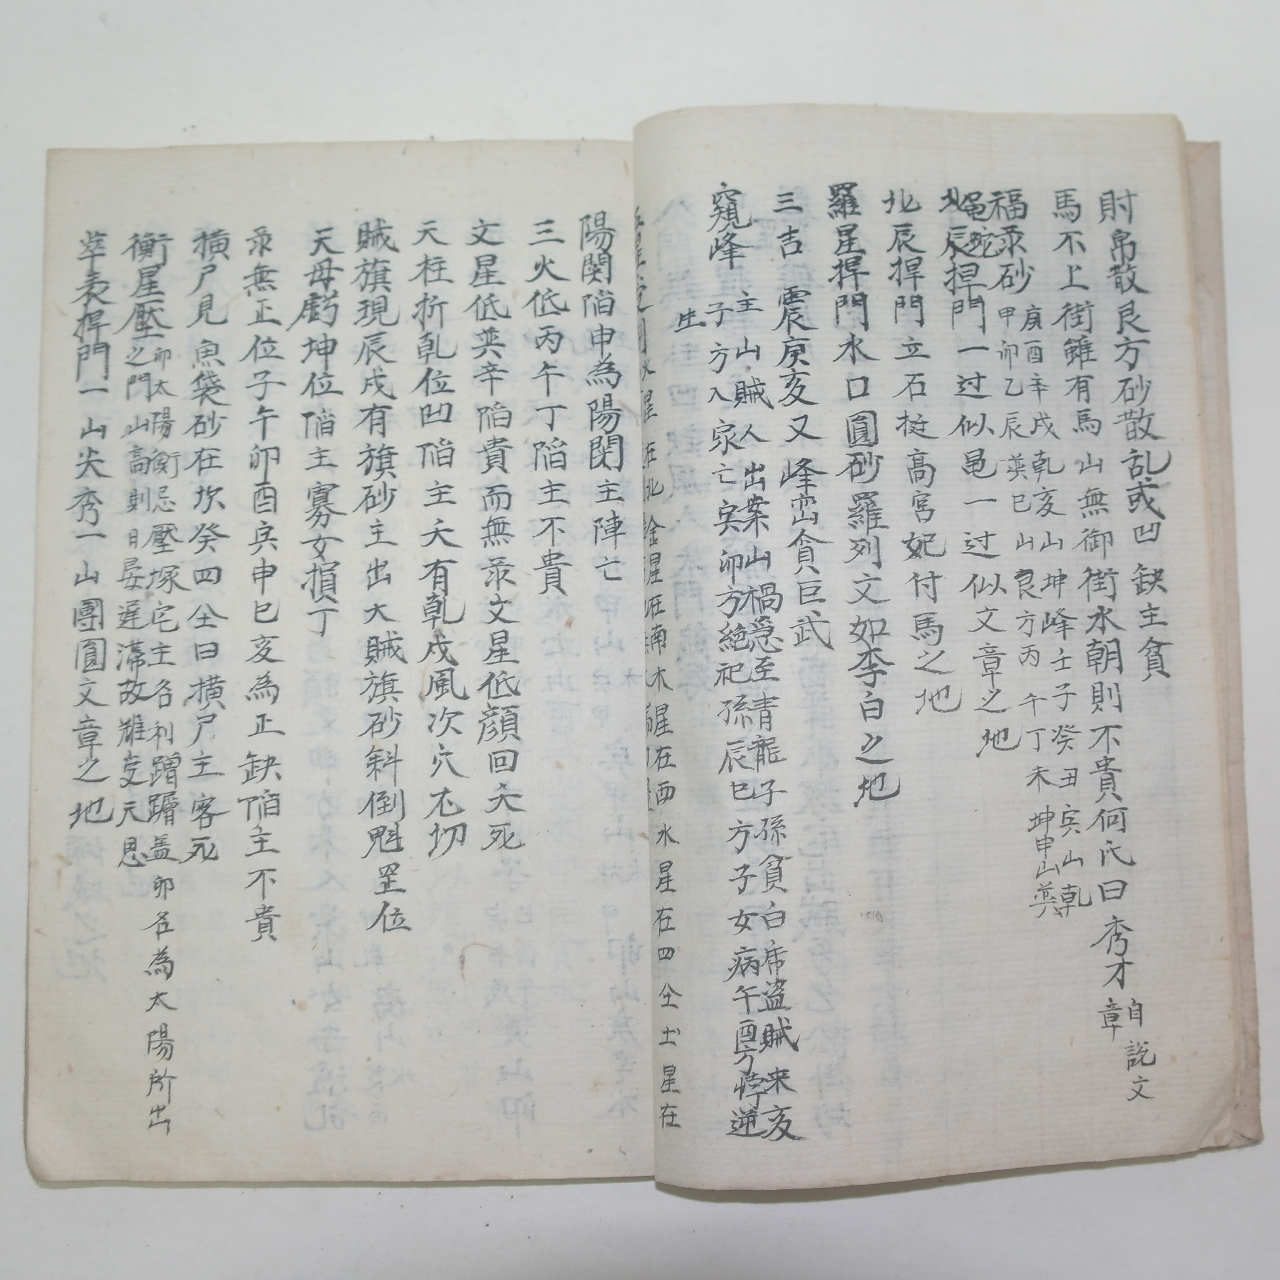 財帛散艮方砂散乱或凹缺主貧
馬不上街雖有馬山無御街水朝則不貴何氏曰秀才自說文章
福录砂庚酉辛戌乾亥山坤峰壬子癸丑寅山乾
甲卯乙辰巽巳山艮方丙午丁未坤申山巽
黽蛇
北辰捍門一过似黽一过似文章之地
北辰捍門立石挺高宮妃付馬之地
羅星捍門水口圓砂羅列文如李白之地
三吉震庚亥又峰巒貪巨武
窺峰主山賊人出案山禍隱至青龍子孫貧白虎盜賊来亥
子方入家亡寅卯方絶祀孫辰巳方子女病午酉方悖逆
生
水星在北金星在南木星在西水星在四仝土星在
陽関陷申為陽関主陣亡
三火低丙午丁陷主不貴
文星低巽辛陷貴而無录文星低顔回夭死
天柱折乹位凹陷主夭有乹戌風次穴尤切
賊旗現辰戌有旗砂主出大賊旗砂斜倒魁罡位
天母虧坤位陷主寡女損丁
录無正位子午卯酉寅申巳亥為正缺陷主不貴
横尸見魚袋砂在坎癸四仝曰横尸主客死
衡星壓卯太陽衡忌壓塚宅主名利蹭蹬盖卯名為太陽所出
之門山高則日晏遲滯故難受天恩
萃表捍門一山尖秀一山團圓文章之地